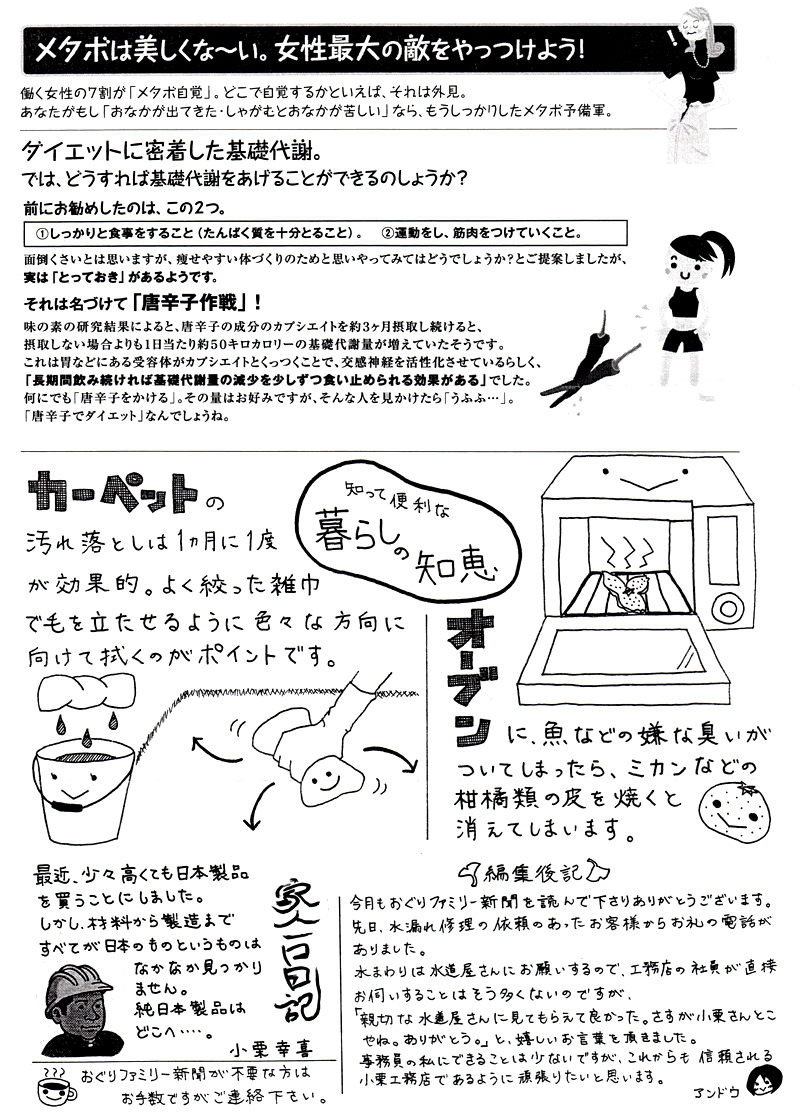 メタボは美しくな〜い。女性最大の敵をやっつけよう!
働く女性の7割が「メタボ自覚」。どこで自覚するかといえば、それは外見。
あなたがもし「おなかが出てきた・しゃがむとおなかが苦しい」なら、もうしっかりしたメタボ予備軍。
ダイエットに密着した基礎代謝。
では、どうすれば基礎代謝をあげることができるのしょうか?
前にお勧めしたのは、この2つ。
①しっかりと食事をすること(たんぱく質を十分とること)。 ②運動をし、筋肉をつけていくこと。
面倒くさいとは思いますが、痩せやすい体づくりのためと思いやってみてはどうでしょうか?とご提案しましたが、
実は「とっておき」があるようです。
それは名づけて「唐辛子作戦」!
味の素の研究結果によると、唐辛子の成分のカプシエイトを約3ヶ月摂取し続けると、
摂取しない場合よりも1日当たり約50キロカロリーの基礎代謝量が増えていたそうです。
これは胃などにある受容体がカプシエイトとくっつくことで、交感神経を活性化させているらしく、
「長期間飲み続ければ基礎代謝量の減少を少しずつ食い止められる効果がある」でした。
何にでも「唐辛子をかける」。その量はお好みですが、そんな人を見かけたら「うふふ…」。
「唐辛子でダイエット」なんでしょうね。
知って便利な
暮らしの
知恵
カーペットの
汚れ落としは1ヵ月に1度
が効果的。よく絞った雑巾
で毛を立たせるように色々な方向に
向けて拭くのがポイントです。
オーブン
に、魚などの嫌な臭いが
ついてしまったら、ミカンなどの
柑橘類の皮を焼くと
消えてしまいます。
家人一口日記
最近、少々高くても日本製品
を買うことにしました。
しかし、材料から製造まで
すべてが日本のものというものは
なかなか見つかり
ません。
純日本製品は
どこへ‥‥。
小栗幸喜
おぐりファミリー新聞が不要な方は
お手数ですがご連絡下さい。
編集後記
今月もおぐりファミリー新聞を読んで下さりありがとうございます。
先日、水漏れ修理の依頼のあったお客様からお礼の電話が
ありました。
水まわりは水道屋さんにお願いするので、工務店の社員が直接
お伺いすることはそう多くないのですが、
「親切な水道屋さんに見てもらえて良かった。さすが小栗さんとこ
やね。ありがとう。」と、嬉しいお言葉を頂きました。
事務員の私にできることは少ないですが、これからも信頼される
小栗工務店であるように頑張りたいと思います。
アンドウ